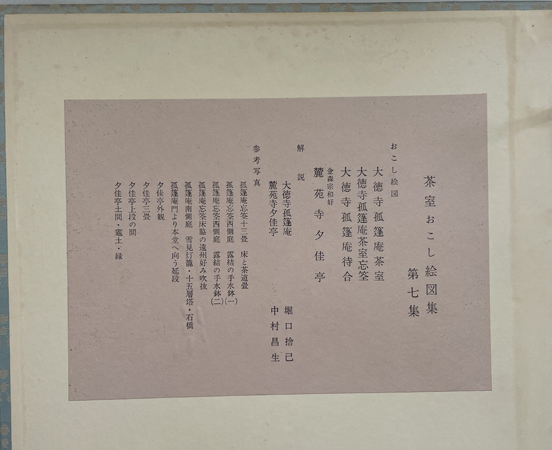 茶室おこし絵図集
第七集
おこし絵図
大徳寺孤篷庵茶室
大徳寺孤篷庵茶室忘筌
大徳寺孤篷庵待合
金森宗和好
麓苑寺夕佳亭
解説
大徳寺孤篷庵 堀口捨己
麓苑寺夕佳亭 中村昌生
参考写真
孤篷庵忘筌十三畳 床と茶道畳
孤篷庵忘筌西側庭 露結の手水鉢(一)
孤篷庵忘筌西側庭 露結の手水鉢(二)
孤篷庵忘筌床脇の遠州好み吹抜
孤篷庵南側庭 雪見灯籠・十五層塔・石橋
孤篷庵門より本堂へ向う延段
夕佳亭外観
夕佳亭三畳
夕佳亭上段の間
夕佳亭土間・竈土・縁